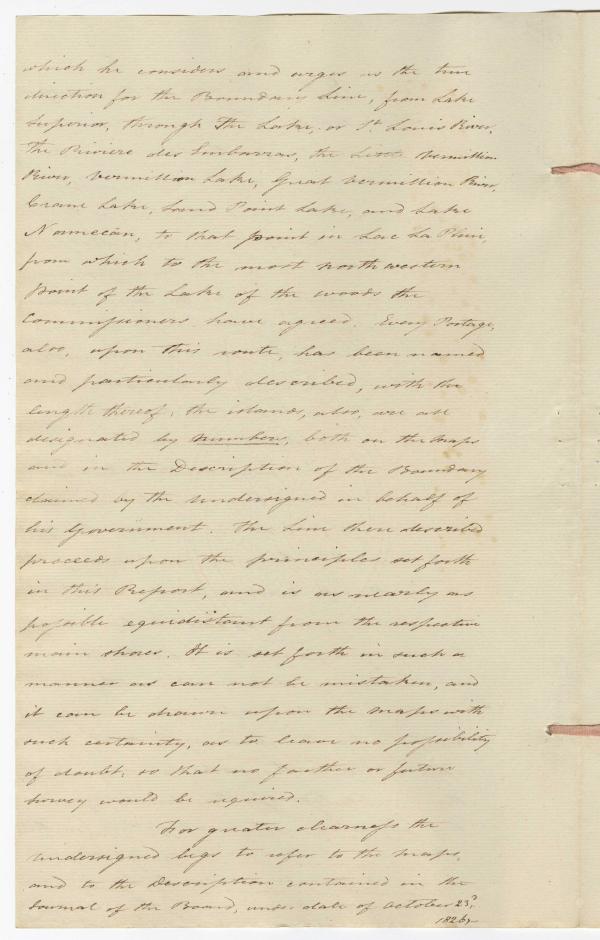 which he considers and urges as the true
direction for the Boundary Line, from Lake
Superior, through the Lake, or St. Louis River,
the Riviere des Embarras, the Little Vermillion
River, Vermillion Lake, Great Vermillion River,
Crane Lake, Sand Point Lake, and Lake
Namecan, to that point in Lac La Pluie,
from which to the most northwestern
point of the Lake of the woods the
Commissioners have agreed. Every Portage,
also, upon this route, has been named
and particularly described, with the
length thereof; the islands, also, are all
designated by numbers, both on the Maps
and in the Description of the Boundary
claimed by the undersigned in behalf of
his Government. The Line there described
proceeds upon the principles set forth
in this Report, and is as nearly as
possible equidistant from the respective
main shores. It is set forth in such a
manner as can not be mistaken, and
it can be drawn upon the maps with
such certainty, as to leave no possibility
of doubt; so that no further or future
survey would be required.
For greater clearness the
undersigned begs to refer to the maps,
and to the Description contained in the
Journal of the Board, under date of October 23d,
1826,